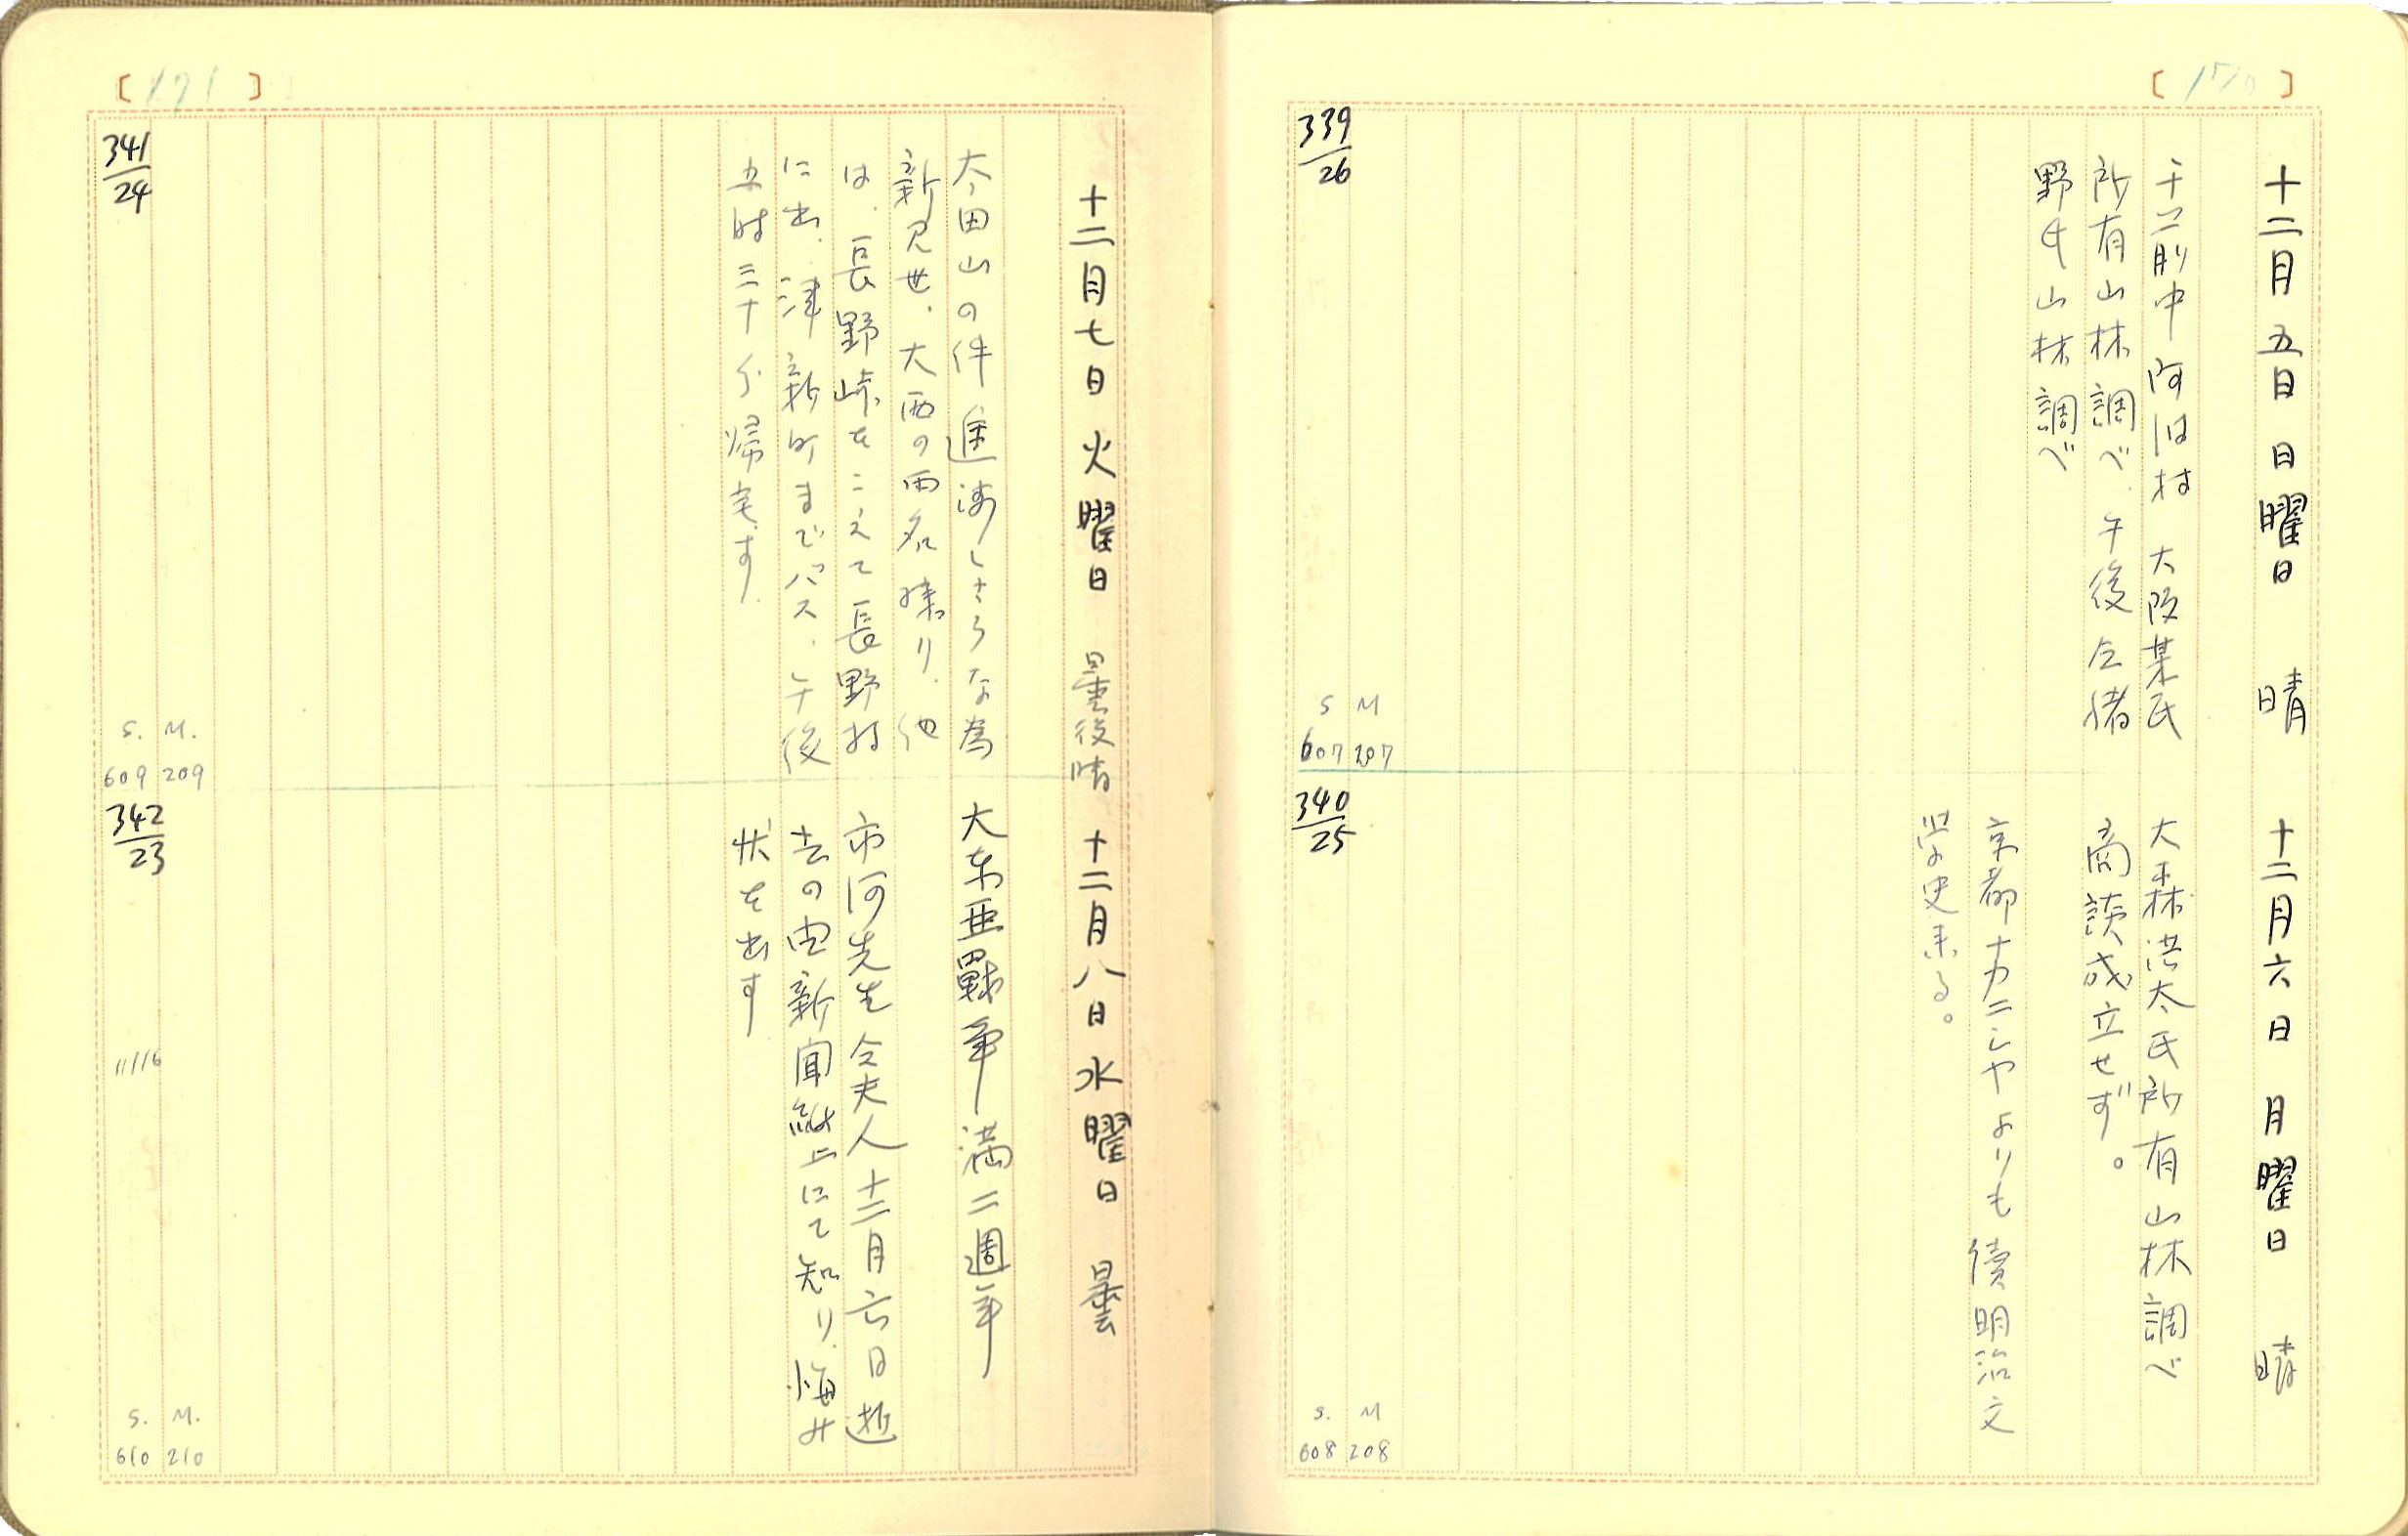 [170]
十二月五日 日曜日 晴
午前中阿波村 大阪某氏
所有山林調べ. 午後今猪
野氏山林調べ
339/26
S M
607 207
十二月六日 月曜日 晴
大森洪太氏所有山林調べ
商談成立せず。
京都ナカニシヤよりも續明治文
学史来る。
340/25
S. M
608 208
[171]
十二月七日 火曜日 曇後晴
太田山の件進渉しさうな為
新見世、大西の両名残り. 他
は. 長野峠をこえて長野村
に出. 津新町までバス. 午後
五時三十分帰宅す.
341/24
S. M.
609 209
十二月八日 水曜日 曇
大東亜戰争満二週年
市河先生令夫人十二月六日逝
去の由新聞紙上にて知り. 悔み
状を出す
342/23
11/16
S. M.
610 210